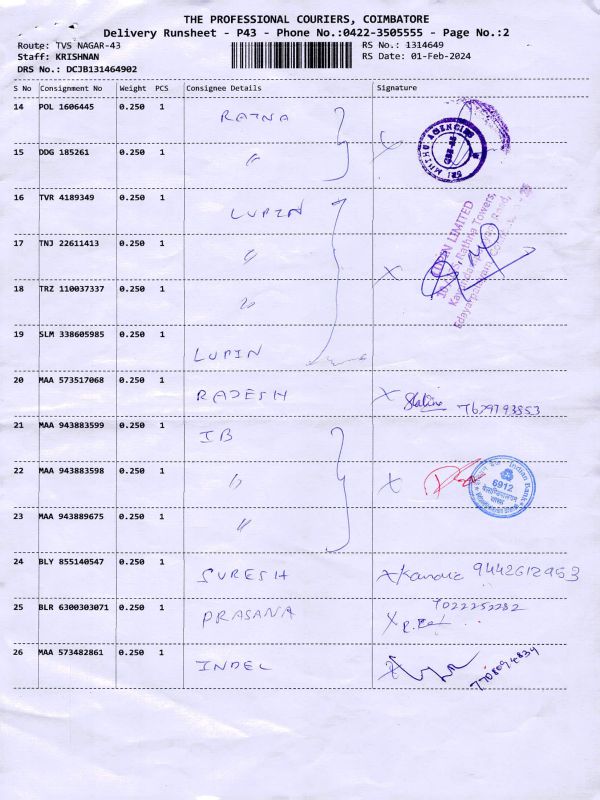 THE PROFESSIONAL COURIERS, COIMBATORE
Delivery Runsheet - P43 - Phone No.:0422-3505555 - Page No.:2
Route: TVS NAGAR-43
RS No.: 1314649
Staff: KRISHNAN
RS Date: 01-Feb-2024
DRS No.: DCJB131464902
S No Consignment No Weight PCS Consignee Details Signature
14 POL 1606445 0.250 1 RATNA
15 DDG 185261 0.250 1 "
SRI MUTHU AGENCIES
16 TVR 4189349 0.250 1 LUPIN
17 TNJ 22611413 0.250 1 "
18 TRZ 110037337 0.250 1 "
LUPIN LIMITED
Rathna Towers,
19 SLM 338605985 0.250 1 LUPIN
20 MAA 573517068 0.250 1 RAJESH
21 MAA 943883599 0.250 1 IB
22 MAA 943883598 0.250 1 "
Indian Bank
6912
23 MAA 943889675 0.250 1 "
24 BLY 855140547 0.250 1 SURESH 9442612953
25 BLR 6300303071 0.250 1 PRASANA
26 MAA 573482861 0.250 1 INDEL
7708094834